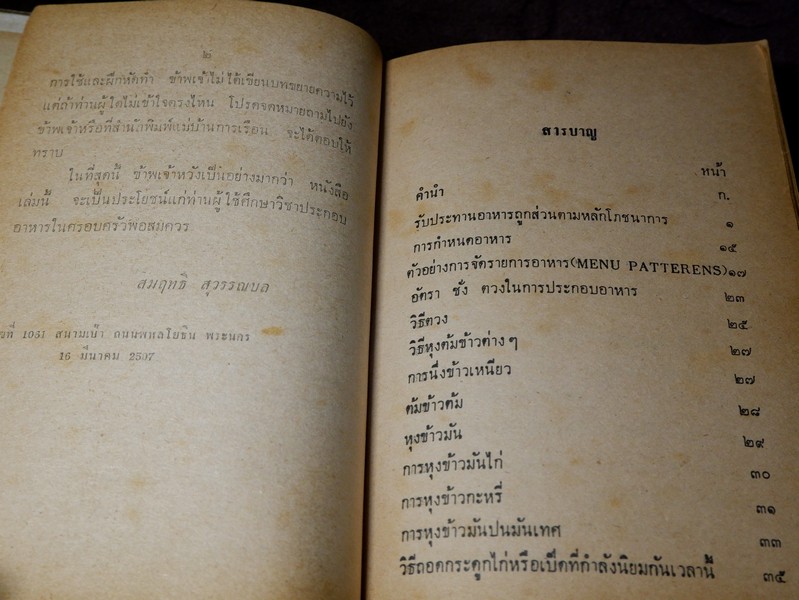 ๒
การใช้และฝึกหัดทำ ข้าพเจ้าไม่ได้เขียนบทขยายความไว้
แต่ถ้าท่านผู้ใดไม่เข้าใจตรงไหน โปรดจดหมายถามไปยัง
ข้าพเจ้าหรือที่สำนักพิมพ์แม่บ้านการเรือน จะได้ตอบให้
ทราบ
ในที่สุดนี้ ข้าพเจ้าหวังเป็นอย่างมากว่า หนังสือ
เล่มนี้ จะเป็นประโยชน์แก่ท่านผู้ใช้ศึกษาวิชาประกอบ
อาหารในครอบครัวพอสมควร
สมฤทธิ สุวรรณบล
ที่ 1051 สนามเป้า ถนนพหลโยธิน พระนคร
16 มีนาคม 2507
สารบาญ
หน้า
คำนำ ก.
รับประทานอาหารถูกส่วนตามหลักโภชนาการ ๑
การกำหนดอาหาร ๑๕
ตัวอย่างการจัดรายการอาหาร(MENU PATTERENS)๑๗
อัตรา ชั่ง ตวงในการประกอบอาหาร ๒๓
วิธีตวง ๒๕
วิธีหุงต้มข้าวต่าง ๆ ๒๗
การนึ่งข้าวเหนียว ๒๗
ต้มข้าวต้ม ๒๘
หุงข้าวมัน ๒๙
การหุงข้าวมันไก่ ๓๐
การหุงข้าวกะหรี่ ๓๑
การหุงข้าวมันปนมันเทศ ๓๓
วิธีถอดกระดูกไก่หรือเป็ดที่กำลังนิยมกันเวลานี้ ๓๕